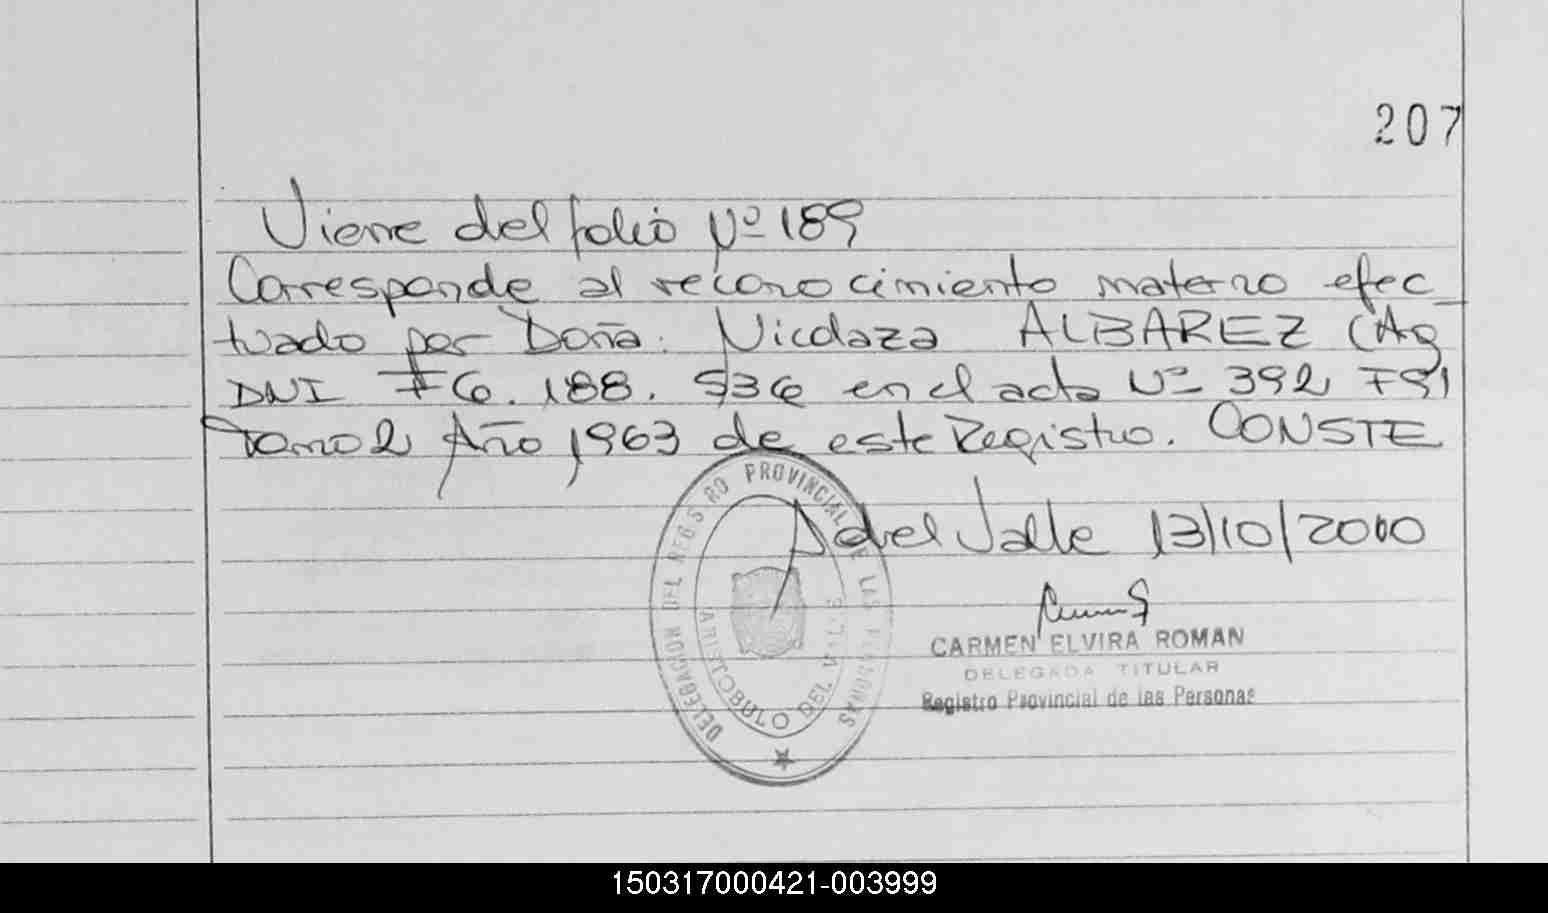 207
Viene del folio Nº 189
Corresponde al reconocimiento materno efec_
tuado por Doña: Nicolaza ALBAREZ (Ag
DNI F6.188.536 en el acta Nº 392 F91
Tomo 2 Año 1963 de este Registro. CONSTE
A del Valle 13/10/2000
DELEGACION DEL REGISTRO PROVINCIAL DE LAS PERSONAS
ARISTOBULO DEL VALLE
CARMEN ELVIRA ROMAN
DELEGADA TITULAR
Registro Provincial de las Personas
150317000421-003999